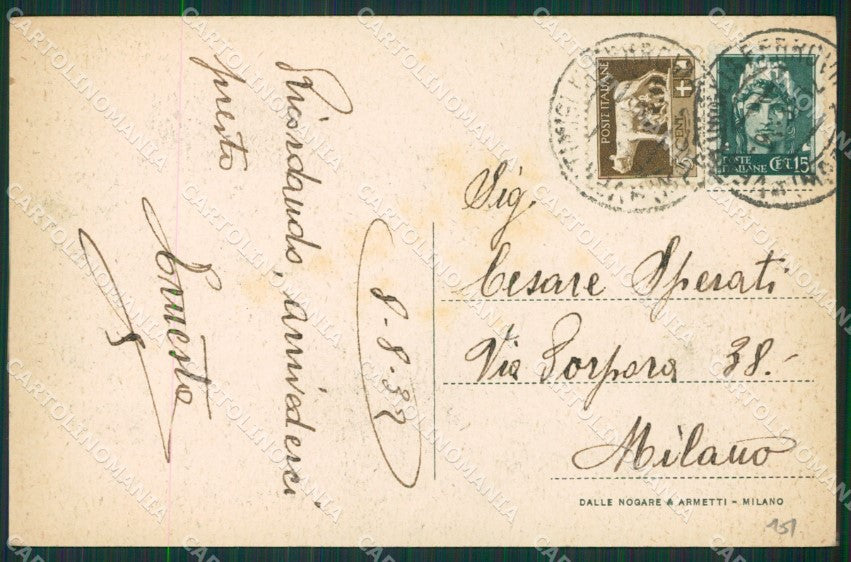 Ricordando, arrivederci
presto
Ernesto
8-8-32
POSTE ITALIANE
5 CENT
POSTE
ITALIANE CENT.15
Sig.
Cesare Sperati
Via Porpora 38.-
Milano
DALLE NOGARE & ARMETTI - MILANO
151
CARTOLINOMANIA